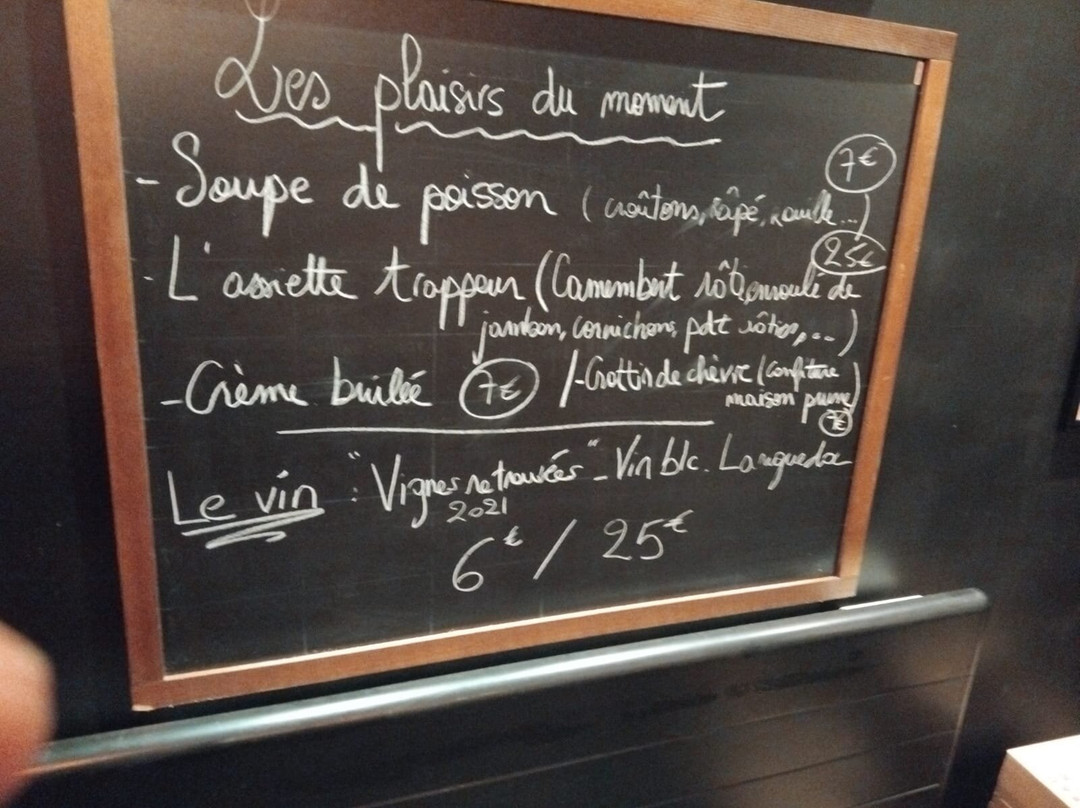 Les plaisirs du moment
7€
- Soupe de poisson (croûtons, râpé, rouille...)
25€
- L'assiette trappeur (Camembert rôti enroulé de
jambon, cornichons, pdt rôties, ...)
- Crème brûlée 7€ /- Crottin de chèvre (confiture
maison prune)
7€
Le vin : "Vignes retrouvées" - Vin blc. Languedoc
2021
6€ / 25€